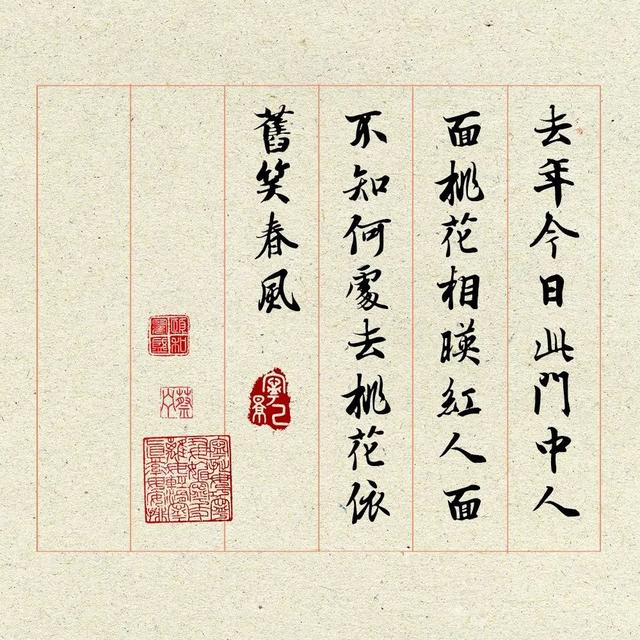 去年今日此門中人
面桃花相暎紅人面
不知何處去桃花依
舊笑春風